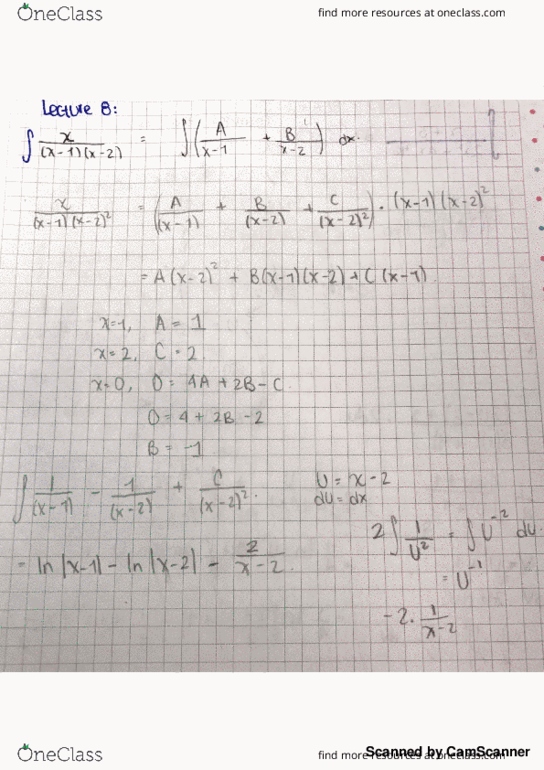 OneClass
find more resources at oneclass.com
Lecture 8:
∫ x/((x-1)(x-2)) = ∫ (A/(x-1) + B/(x-2)) dx.
x/((x-1)(x-2)²) = (A/(x-1) + B/(x-2) + C/(x-2)²) · (x-1)(x-2)²
= A(x-2)² + B(x-1)(x-2) + C(x-1)
x=1, A = 1
x=2, C = 2
x=0, 0 = 4A + 2B - C
0 = 4 + 2B - 2
B = -1
∫ 1/(x-1) - 1/(x-2) + C/(x-2)².
U = x - 2
du = dx
2∫ 1/U² = ∫ U⁻² du.
= U⁻¹
= ln|x-1| - ln|x-2| - 2/(x-2)
-2. 1/(x-2)
OneClass
find more resources at oneclass.com
Scanned by CamScanner